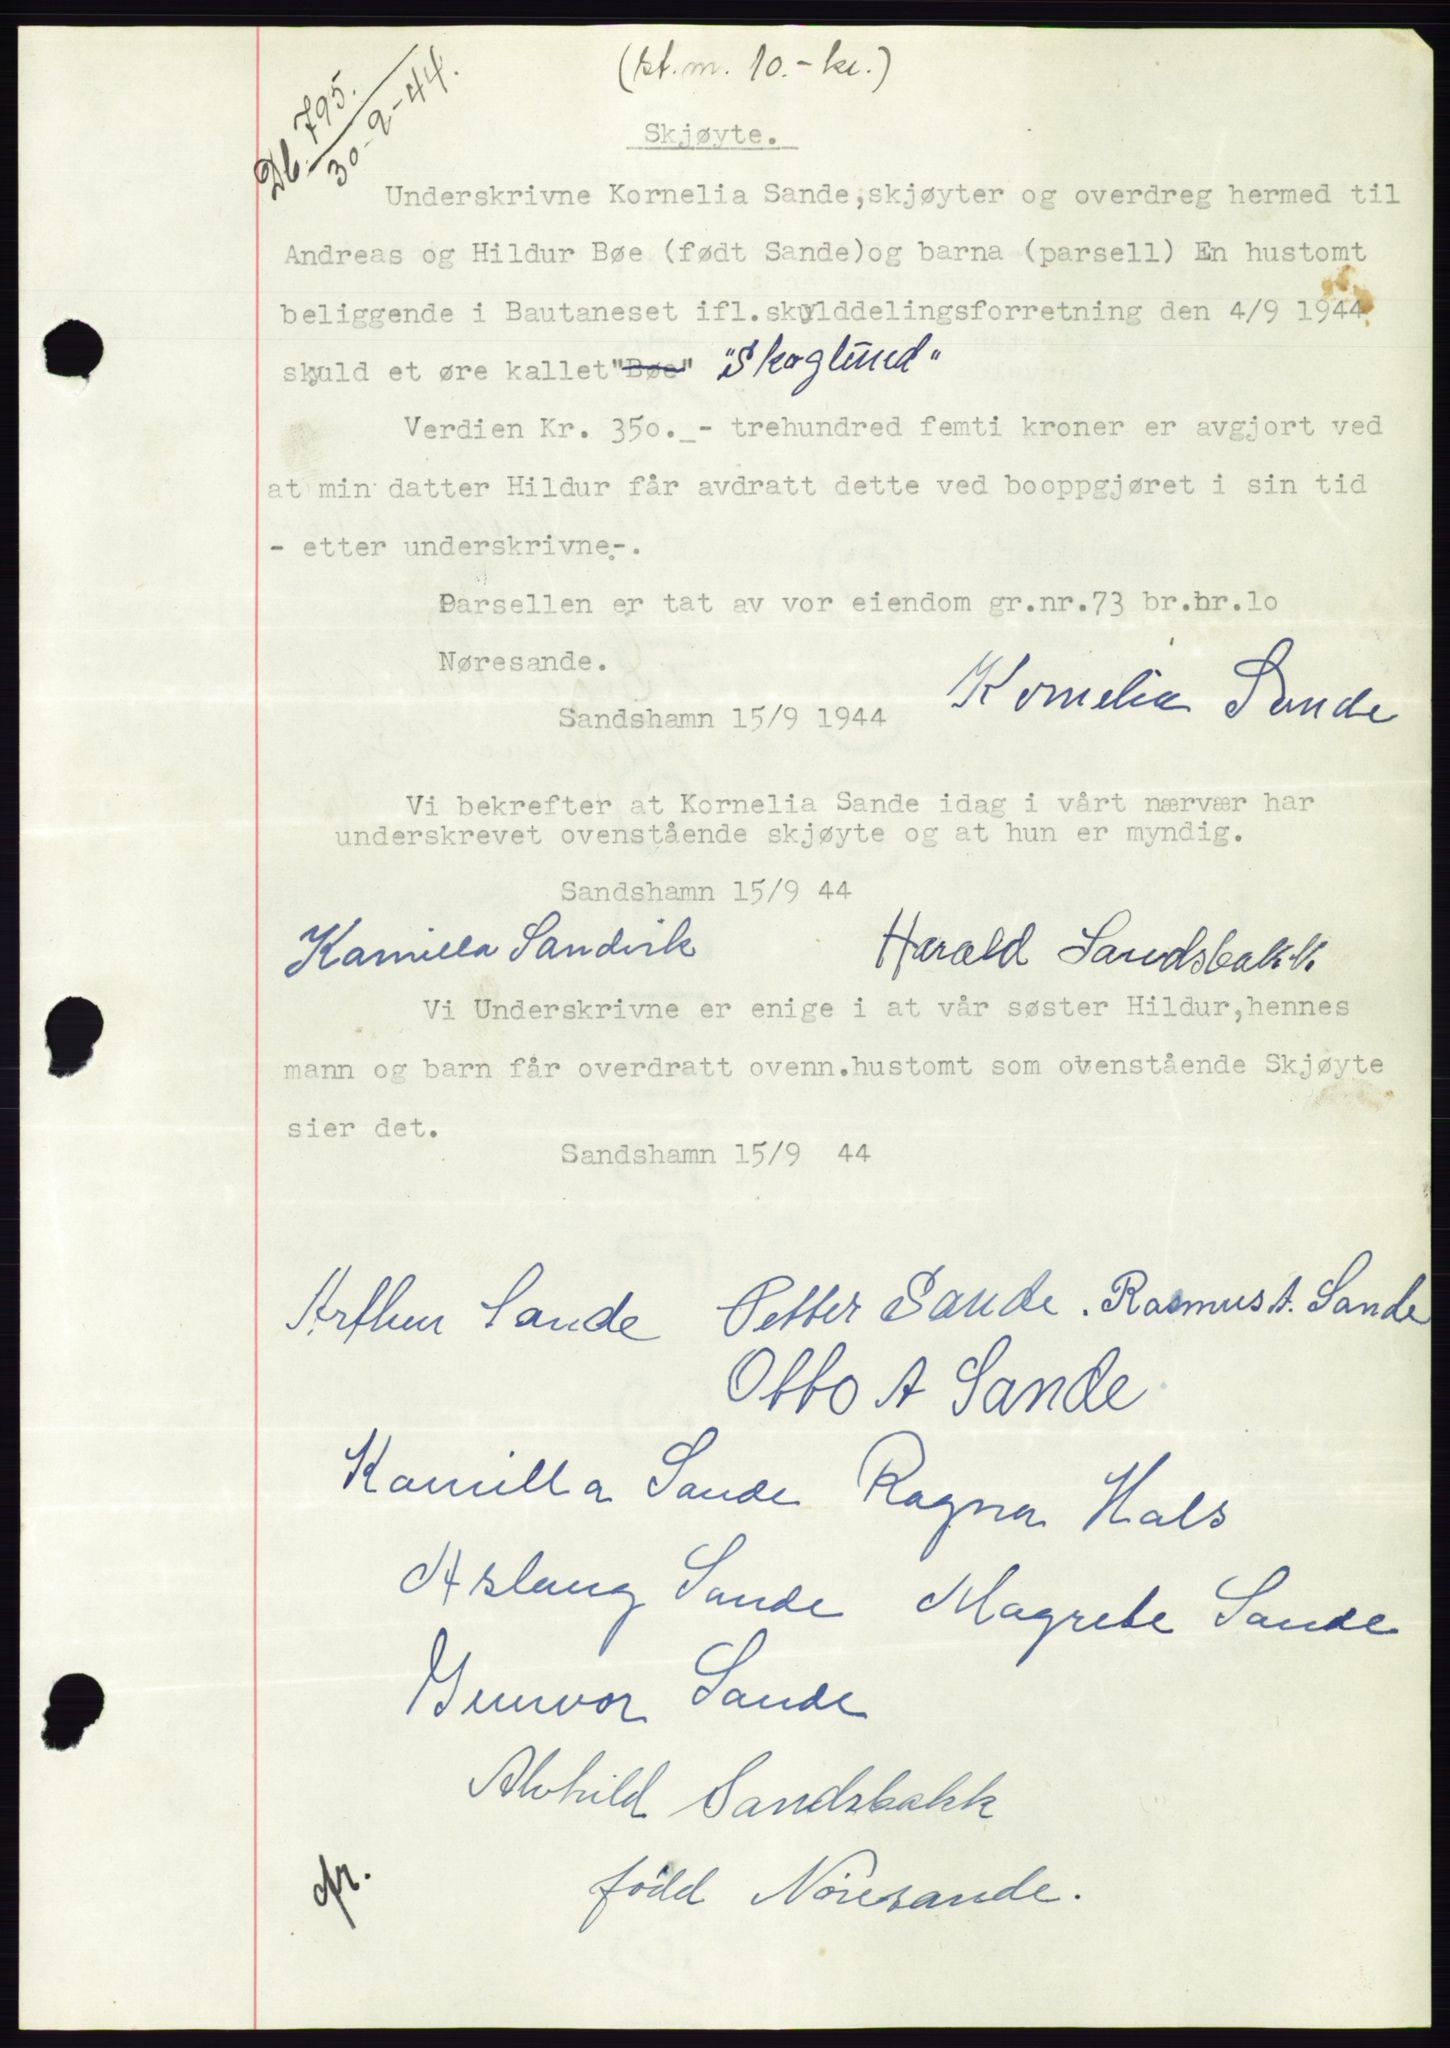 (st.m. 10.- kr.)
Db. 795.
30-9-44.
Skjøyte.
Underskrivne Kornelia Sande,skjøyter og overdreg hermed til
Andreas og Hildur Bøe (født Sande)og barna (parsell) En hustomt
beliggende i Bautaneset ifl.skylddelingsforretning den 4/9 1944
skyld et øre kallet"Bøe" "Skoglund"
Verdien Kr. 350._- trehundred femti kroner er avgjort ved
at min datter Hildur får avdratt dette ved booppgjøret i sin tid
- etter underskrivne-.
Parsellen er tat av vor eiendom gr.nr.73 br.nr.10
Nøresande.
Kornelia Sande
Sandshamn 15/9 1944
Vi bekrefter at Kornelia Sande idag i vårt nærvær har
underskrevet ovenstående skjøyte og at hun er myndig.
Sandshamn 15/9 44
Kamilla Sandvik Harald Sandsbakk.
Vi Underskrivne er enige i at vår søster Hildur,hennes
mann og barn får overdratt ovenn.hustomt som ovenstående Skjøyte
sier det.
Sandshamn 15/9 44
Arthur Sande Petter Sande. Rasmus A. Sande
Otto A Sande
Kamilla Sande Ragna Hals
Aslaug Sande Magrete Sande
Gunvor Sande
Alvhild Sandsbakk
født Nøresande.